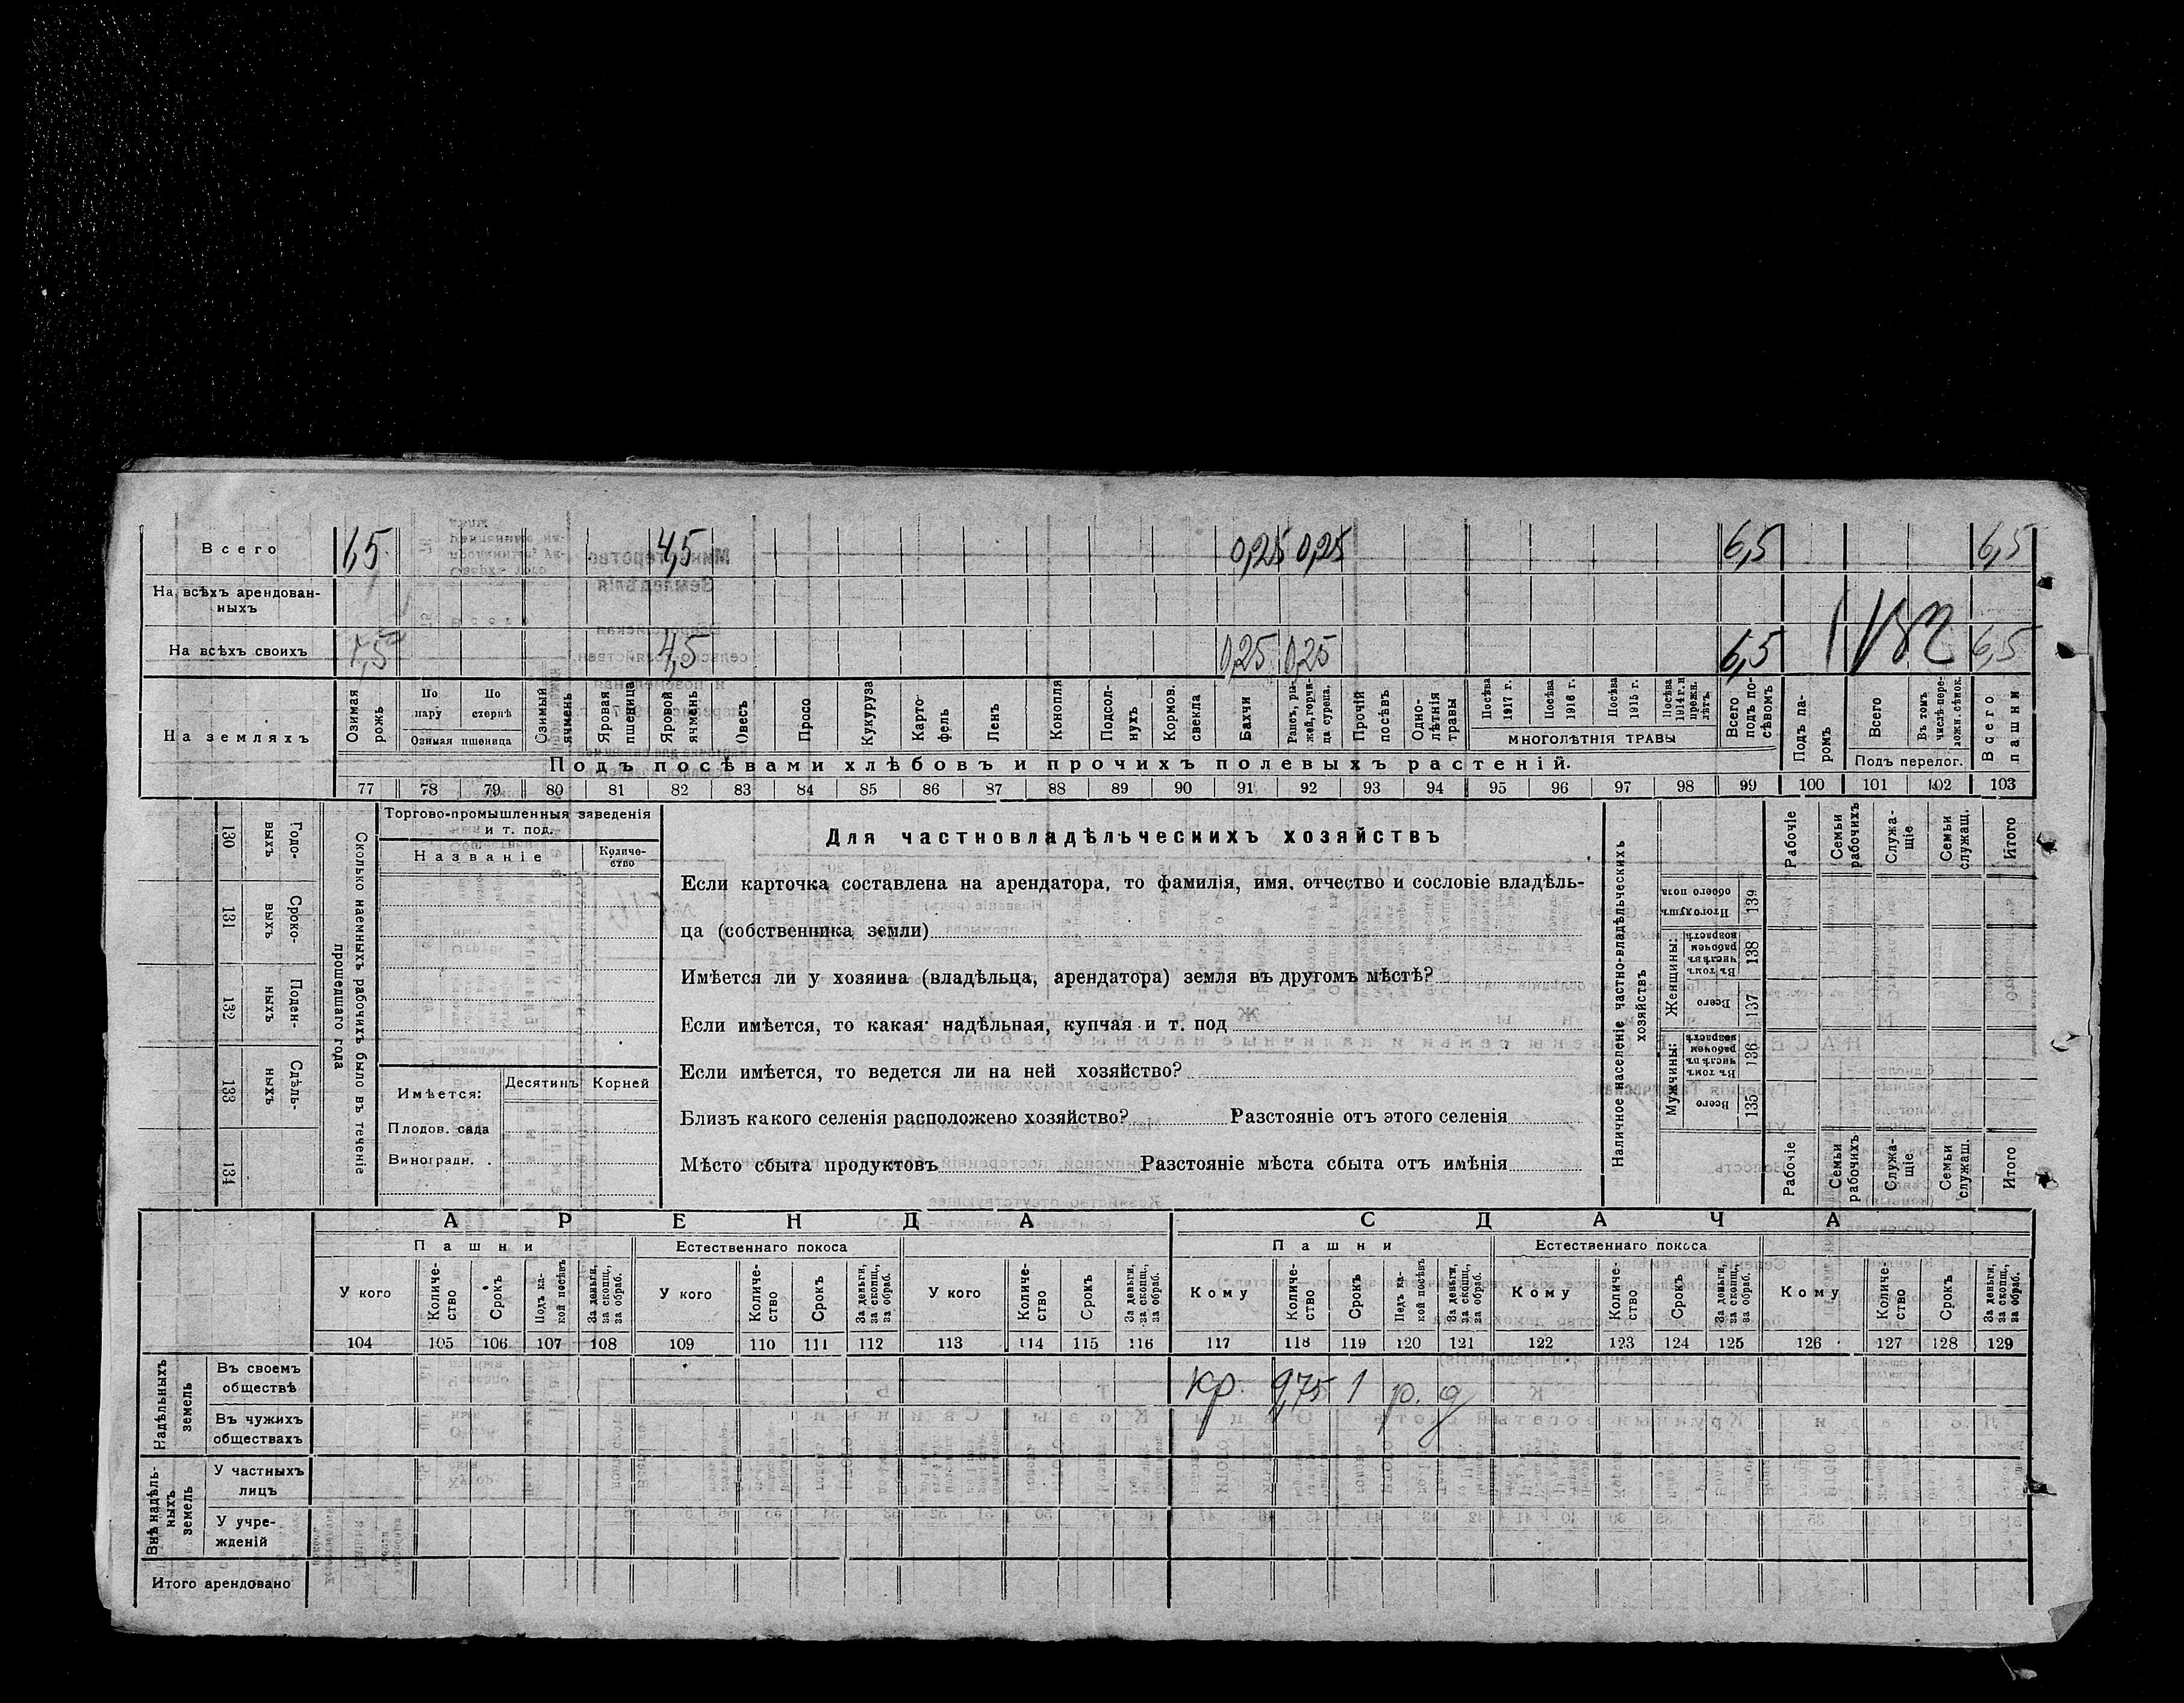 Всего 1,5 4,5 0,25 0,25 6,5 6,5
На всѣхъ арендован-
ныхъ
На всѣхъ своихъ 1,5 4,5 0,25 0,25 6,5 6,5
На земляхъ
Озимая рожь
По пару
По стернѣ
Озимая пшеница
Озимый ячмень
Яровая пшеница
Яровой ячмень
Овесъ
Просо
Кукуруза
Карто-
фель
Ленъ
Конопля
Подсол-
нухъ
Кормов. свекла
Бахчи
Рапсъ, ры-
жей, горчи-
ца сурепа.
Прочій посѣвъ
Одно-
лѣтнія травы
Посѣва 1917 г.
Посѣва 1916 г.
Посѣва 1915 г.
Посѣва 1914 г. и прежн. лѣтъ
многолѣтнія травы
Всего подъ по-
сѣвомъ
Подъ па-
ромъ
Всего
Въ томъ числѣ пере-
ложн. сѣнок.
Подъ перелог.
Всего пашни
Подъ посѣвами хлѣбовъ и прочихъ полевыхъ растеній.
77 78 79 80 81 82 83 84 85 86 87 88 89 90 91 92 93 94 95 96 97 98 99 100 101 102 103
130 Годо-
выхъ
131 Сроко-
выхъ
132 Поден-
ныхъ
133 Сдѣль-
ныхъ
134
Сколько наемныхъ рабочихъ было въ теченіе
прошедшаго года
Торгово-промышленныя заведенія
и т. под.
Названіе
Количе-
ство
Имѣется:
Десятинъ Корней
Плодов. сада
Виноградн.
Для частновладѣльческихъ хозяйствъ
Если карточка составлена на арендатора, то фамилія, имя, отчество и сословіе владѣль-
ца (собственника земли)
Имѣется ли у хозяина (владѣльца, арендатора) земля въ другомъ мѣстѣ?
Если имѣется, то какая надѣльная, купчая и т. под
Если имѣется, то ведется ли на ней хозяйство?
Близъ какого селенія расположено хозяйство? Разстояніе отъ этого селенія
Мѣсто сбыта продуктовъ Разстояніе мѣста сбыта отъ имѣнія
Наличное населеніе частно-владѣльческихъ
хозяйствъ
Мужчины:
Женщины:
Итого душъ обоего пола 139
Въ томъ числѣ въ рабочем возрастѣ 138
Всего 137
Въ томъ числѣ въ рабочем возрастѣ 136
Всего 135
Рабочіе
Семьи рабочихъ
Служа-
щіе
Семьи служащ.
Итого
Рабочіе
Семьи рабочихъ
Служа-
щіе
Семьи служащ.
Итого
АРЕНДА СДАЧА
Пашни Естественнаго покоса Пашни Естественнаго покоса
У кого
Количе-
ство
Срокъ
Подъ ка-
кой посѣвъ
За деньги, за скопщ., за обраб.
У кого
Количе-
ство
Срокъ
За деньги, за скопщ., за обраб.
У кого
Количе-
ство
Срокъ
За деньги, за скопщ., за обраб.
Кому
Количе-
ство
Срокъ
Подъ ка-
кой посѣвъ
За деньги, за скопщ., за обраб.
Кому
Количе-
ство
Срокъ
За деньги, за скопщ., за обраб.
Кому
Количе-
ство
Срокъ
За деньги, за скопщ., за обраб.
104 105 106 107 108 109 110 111 112 113 114 115 116 117 118 119 120 121 122 123 124 125 126 127 128 129
Надѣльныхъ
земель
Въ своемъ
обществѣ
кр. 9,75 1 р. д
Въ чужихъ
обществахъ
Внѣ надѣль-
ныхъ
земель
У частныхъ
лицъ
У учре-
жденій
Итого арендовано